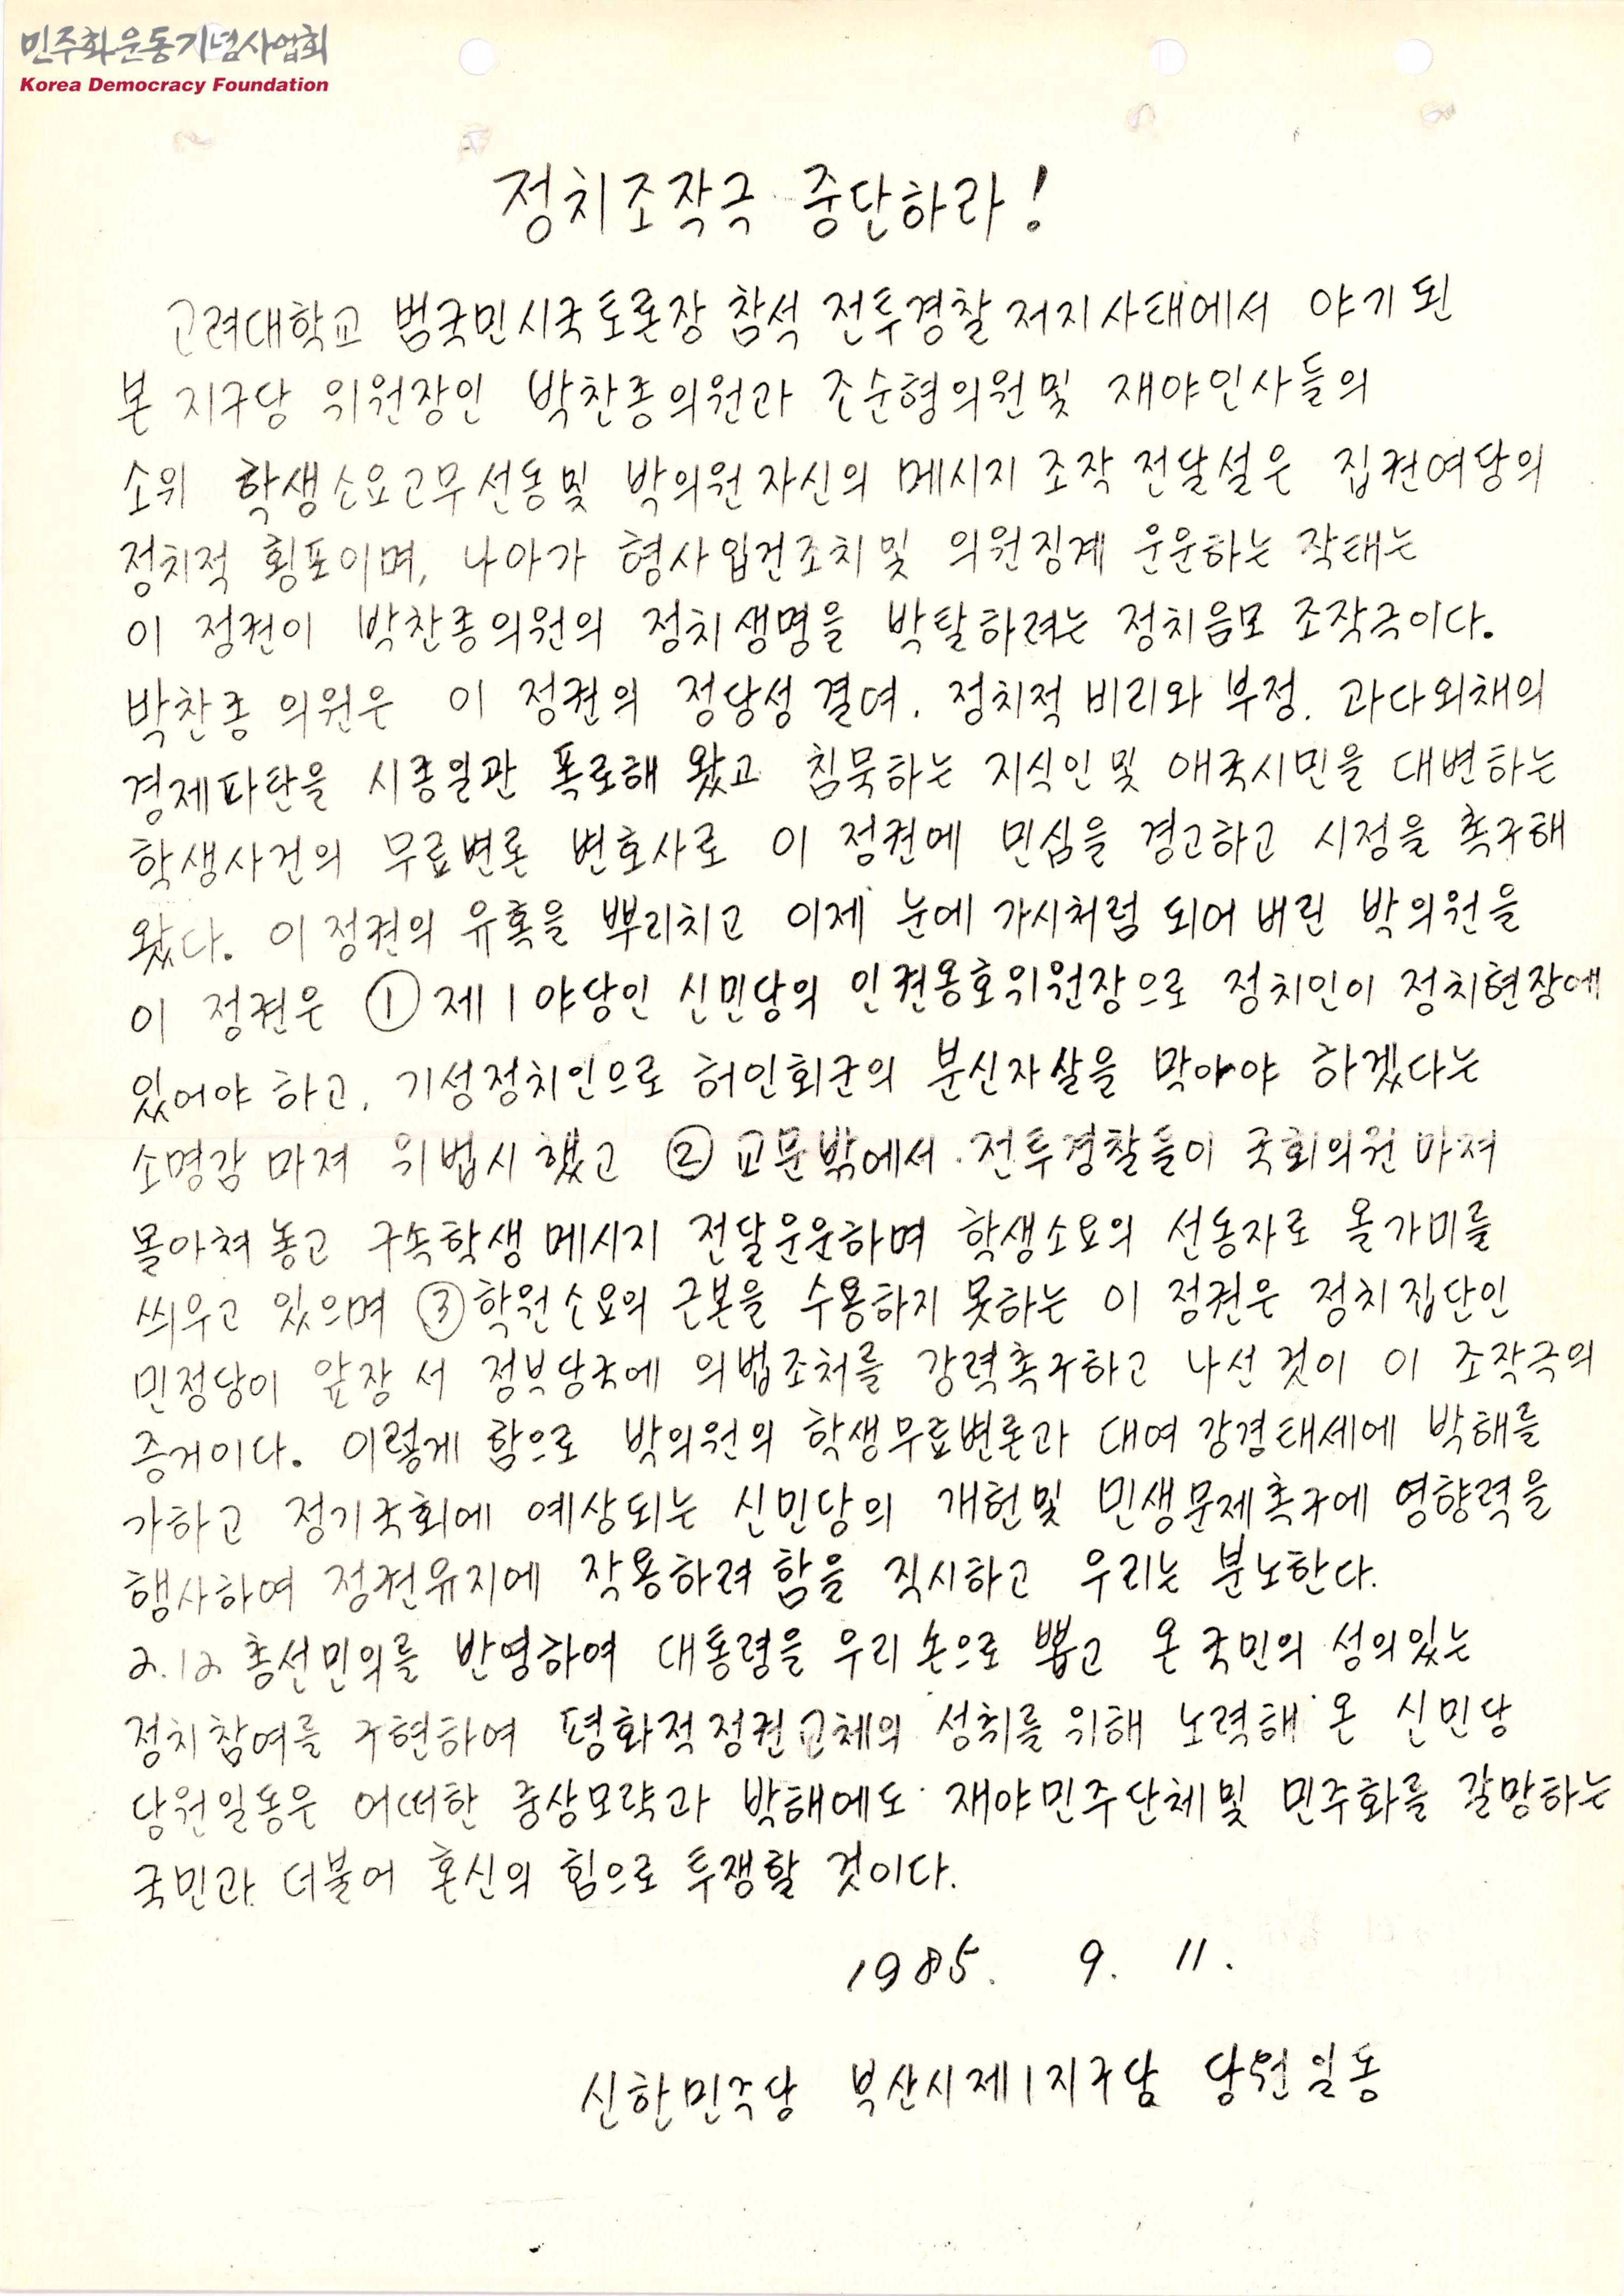 민주화운동기념사업회
Korea Democracy Foundation
정치조작극 중단하라!
고려대학교 범국민시국토론장 참석 전투경찰 저지사태에서 야기된
본 지구당 위원장인 박찬종의원과 조순형의원및 재야인사들의
소위 학생소요고무선동및 박의원자신의 메시지 조작 전달설은 집권여당의
정치적 횡포이며, 나아가 형사입건조치및 의원징계 운운하는 작태는
이 정권이 박찬종의원의 정치생명을 박탈하려는 정치음모 조작극이다.
박찬종 의원은 이 정권의 정당성 결여. 정치적 비리와 부정. 과다외채의
경제파탄을 시종일관 폭로해 왔고 침묵하는 지식인및 애국시민을 대변하는
학생사건의 무료변론 변호사로 이 정권에 민심을 경고하고 시정을 촉구해
왔다. 이 정권의 유혹을 뿌리치고 이제 눈에 가시처럼 되어 버린 박의원을
이 정권은 ① 제1야당인 신민당의 인권옹호위원장으로 정치인이 정치현장에
있어야 하고, 기성정치인으로 허인회군의 분신자살을 막아야 하겠다는
소명감 마져 위법시 했고 ② 교문밖에서 전투경찰들이 국회의원마져
몰아쳐 놓고 구속학생 메시지 전달운운하며 학생소요의 선동자로 올가미를
씌우고 있으며 ③ 학원소요의 근본을 수용하지 못하는 이 정권은 정치집단인
민정당이 앞장 서 정부당국에 의법조처를 강력촉구하고 나선 것이 이 조작극의
증거이다. 이렇게 함으로 박의원의 학생무료변론과 대여 강경태세에 박해를
가하고 정기국회에 예상되는 신민당의 개헌및 민생문제촉구에 영향력을
행사하여 정권유지에 작용하려 함을 직시하고 우리는 분노한다.
2.12 총선민의를 반영하여 대통령을 우리 손으로 뽑고 온 국민의 성의있는
정치참여를 구현하여 평화적정권교체의 성취를 위해 노력해 온 신민당
당원일동은 어떠한 중상모략과 박해에도 재야민주단체및 민주화를 갈망하는
국민과 더불어 혼신의 힘으로 투쟁할 것이다.
1985. 9. 11.
신한민주당 부산시제1지구당 당원일동